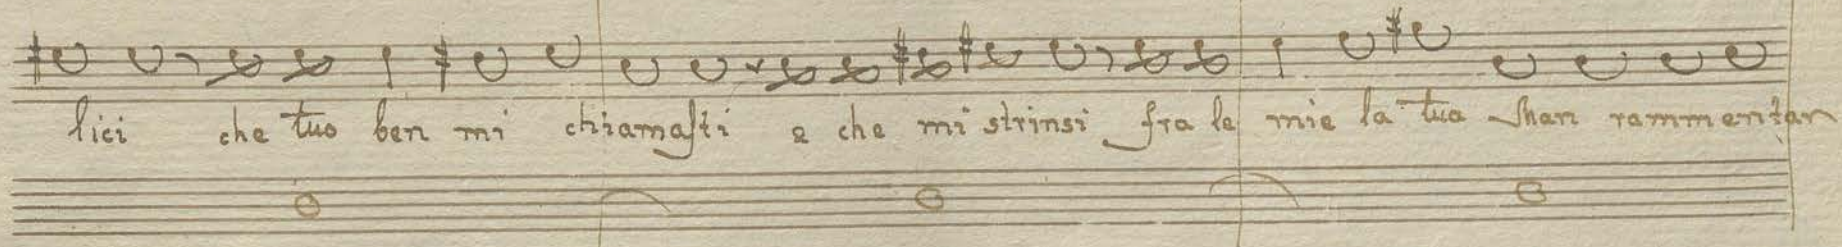 lici che tuo ben mi chiamasti e che mi strinsi fra le mie la tua Man rammentar